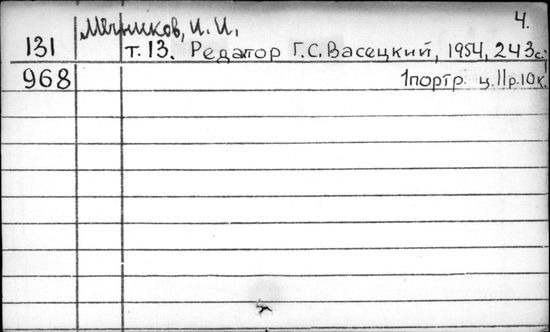 4.
Мечников, И. И.
131 т. 13. Редактор Г.С. Васецкий, 1954, 243с.
968 1портр. ц.11р.10к.